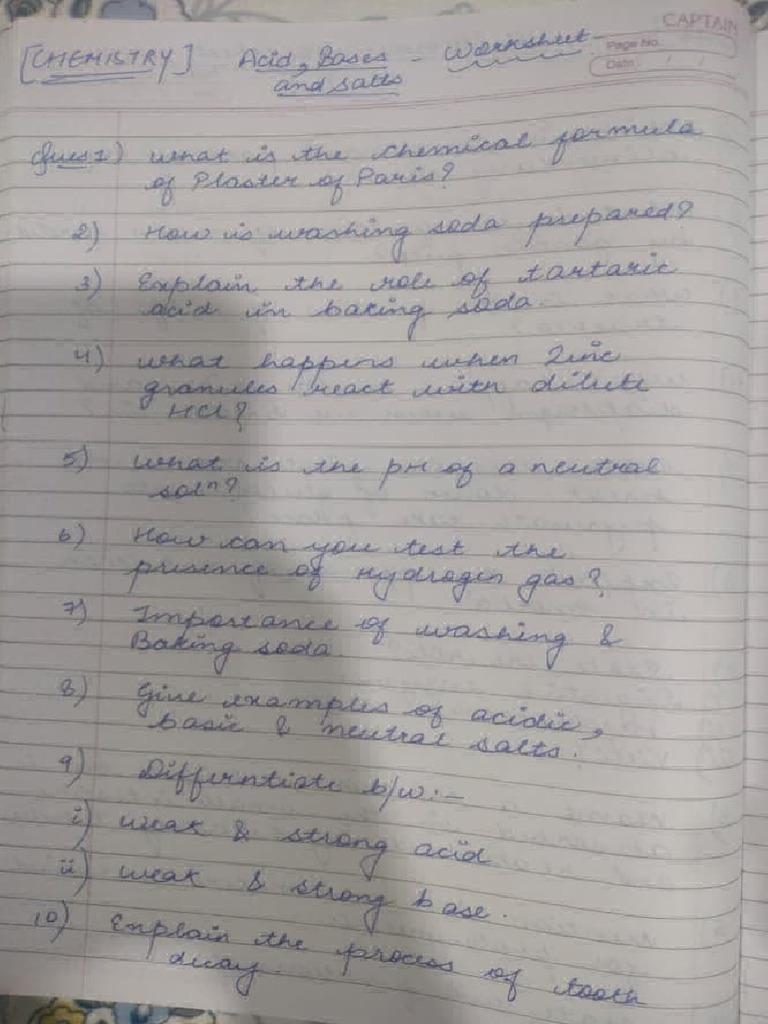 CAPTAIN
Page No.
Date: / /
[CHEMISTRY] Acid, Bases - Worksheet
and salts
Ques 1) What is the chemical formula
of Plaster of Paris?
2) How is washing soda prepared?
3) Explain the role of tartaric
acid in baking soda.
4) What happens when Zinc
granules react with dilute
HCl?
5) What is the pH of a neutral
solⁿ?
6) How can you test the
presence of Hydrogen gas?
7) Importance of washing &
Baking soda.
8) Give examples of acidic,
basic & neutral salts.
9) Differntiate b/w:-
i) weak & strong acid
ii) weak & strong base.
10) Explain the process of tooth
decay.